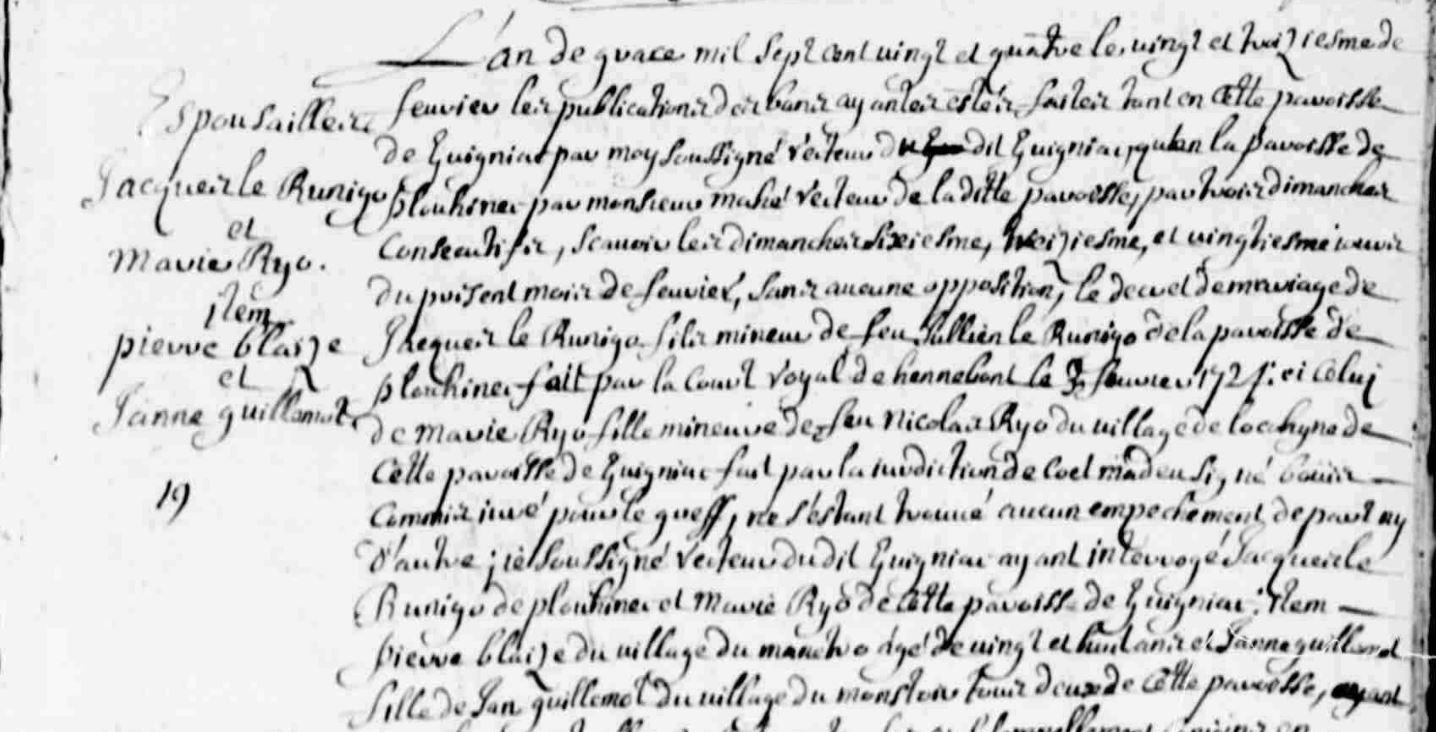 L'an de grace mil sept cent vingt et quatre le vingt et troiziesme de
feuvier les publications des bans ayantes estés faites tant en cette paroisse
de Guigniac par moy soussigné recteur du dit Guigniac, qu'en la paroisse de
plouhinec par monsieur mahé recteur de la ditte paroisse, par trois dimanches
consecutifs, scauoir les dimanches sixiesme, treiziesme, et vingtiesme iours
du present mois de feuvier, sans aucune opposition, le decret de mariage de
Jacques le Runigo fils mineur de feu Jullien le Runigo de la paroisse de
plouhinec fait par la Court royal de hennebont le feuvrier et celuj
de Marie Ryo fille mineure de feu Nicolas Ryo du village de de
cette paroisse de Guigniac fait par la iurdiction de signé
Commis iuré pour le greff, ne s'estant trouué aucun empechement de part ny
d'autre; ie soussigné recteur du dit Guigniac ayant interrogé Jacques le
Runigo de plouhinec et Marie Ryo de cette paroisse de Guigniac; Item
pierre blaize du village du manetro agé de vingt et huit ans et Janne guillemot
fille de Jan guillemot du village du monstoir tous deux de cette paroisse, ayant
Espousailles
Jacques le Runigo
et
Marie Ryo.
item
pierre blaize
et
Janne guillemot
19